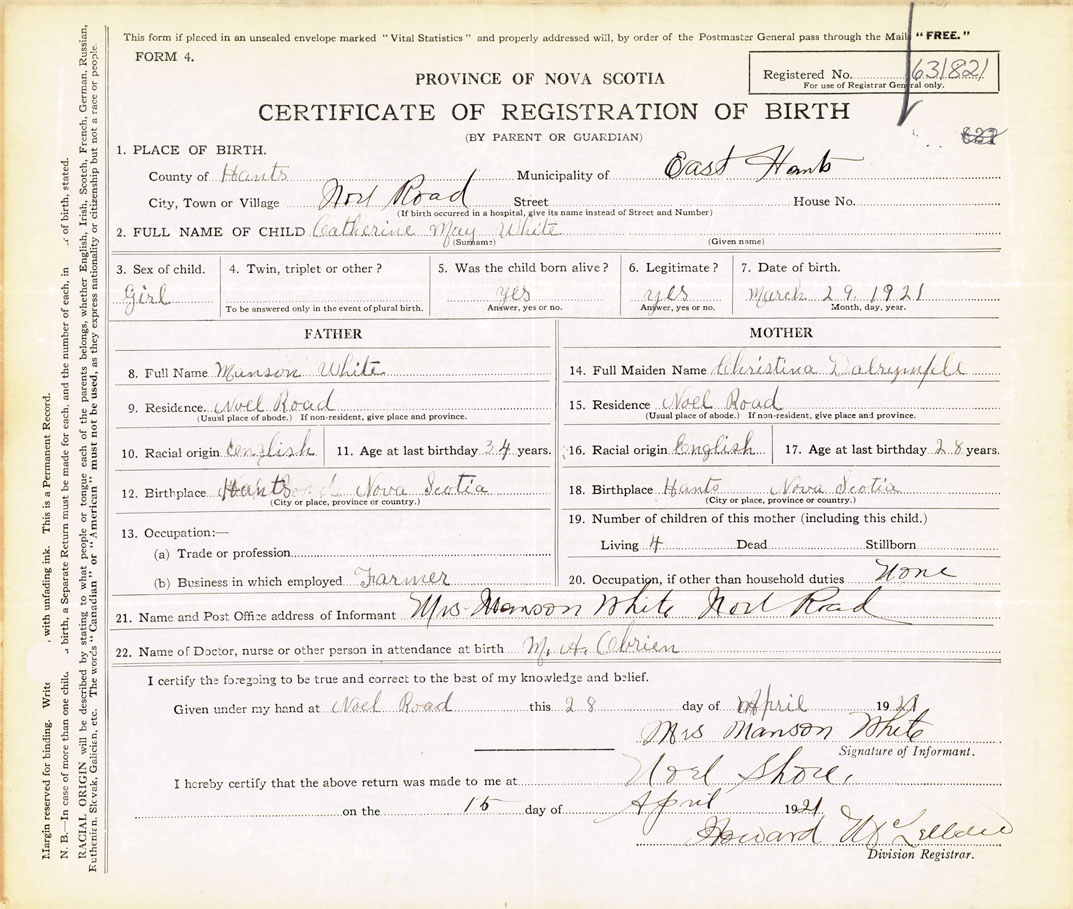 This form if placed in an unsealed envelope marked "Vital Statistics" and properly addressed will, by order of the Postmaster General pass through the Mails "FREE."
FORM 4.
PROVINCE OF NOVA SCOTIA
Registered No. 631821
For use of Registrar General only.
CERTIFICATE OF REGISTRATION OF BIRTH
(BY PARENT OR GUARDIAN)
1. PLACE OF BIRTH.
County of Hants Municipality of East Hants
City, Town or Village Noel Road Street House No.
(If birth occurred in a hospital, give its name instead of Street and Number)
2. FULL NAME OF CHILD Catherine May White
(Surname) (Given name)
3. Sex of child. 4. Twin, triplet or other? 5. Was the child born alive? 6. Legitimate? 7. Date of birth.
Girl yes yes March 29 1921
To be answered only in the event of plural birth. Answer, yes or no. Answer, yes or no. Month, day, year.
FATHER
8. Full Name Manson White
9. Residence. Noel Road
(Usual place of abode.) If non-resident, give place and province.
10. Racial origin English 11. Age at last birthday 34 years.
12. Birthplace Hants Nova Scotia
(City or place, province or country.)
13. Occupation:—
(a) Trade or profession
(b) Business in which employed Farmer
MOTHER
14. Full Maiden Name Christina Dalrymple
15. Residence Noel Road
(Usual place of abode.) If non-resident, give place and province.
16. Racial origin English 17. Age at last birthday 28 years.
18. Birthplace Hants Nova Scotia
(City or place, province or country.)
19. Number of children of this mother (including this child.)
Living 4 Dead Stillborn
20. Occupation, if other than household duties None
21. Name and Post Office address of Informant Mrs Manson White Noel Road
22. Name of Doctor, nurse or other person in attendance at birth M. A. Obrien
I certify the foregoing to be true and correct to the best of my knowledge and belief.
Given under my hand at Noel Road this 28 day of April 1921
Mrs Manson White
Signature of Informant.
I hereby certify that the above return was made to me at Noel Shore,
on the 15 day of April 1921
Howard McLellan
Division Registrar.
Margin reserved for binding. Write, with unfading ink. This is a Permanent Record.
N. B.—In case of more than one child birth, a Separate Return must be made for each, and the number of each, in of birth, stated.
RACIAL ORIGIN will be described by stating to what people or tongue each of the parents belongs, whether English, Irish, Scotch, French, German, Russian,
Ruthenian, Slovak, Galicien, etc. The words "Canadian" or "American" must not be used, as they express nationality or citizenship but not a race or people.